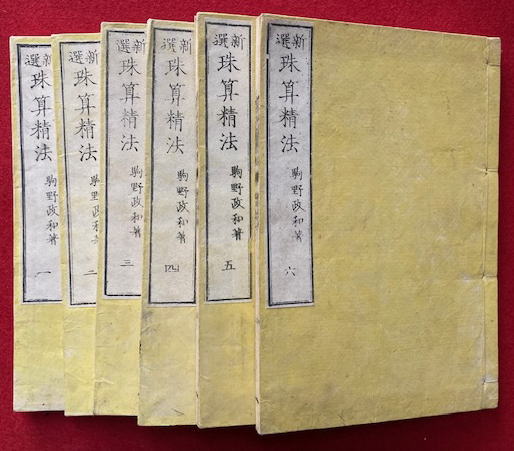 新選
珠算精法
駒野政和著
一
新選
珠算精法
駒野政和著
二
新選
珠算精法
駒野政和著
三
新選
珠算精法
駒野政和著
四
新選
珠算精法
駒野政和著
五
新選
珠算精法
駒野政和著
六